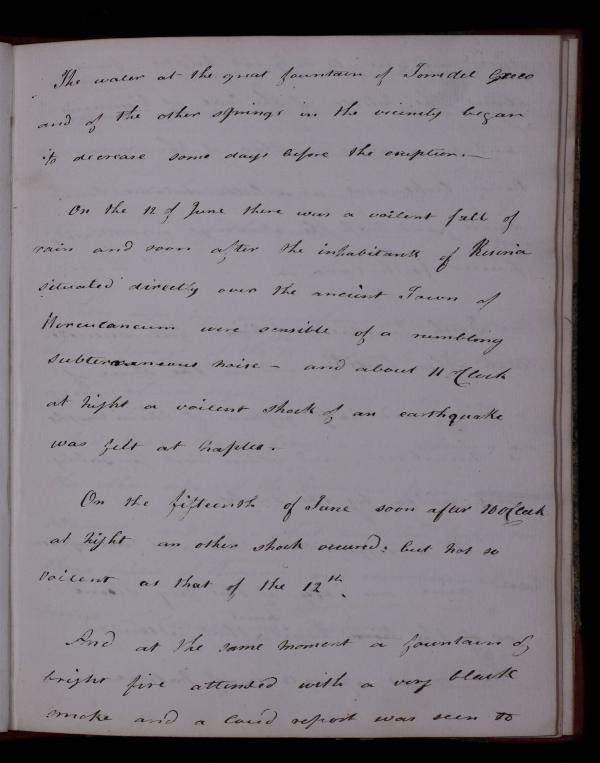 The water at the great fountain of Torredel Greco
and of the other springs in the vicinity began
to decrease some days before the eruption.—
On the 12 of June there was a voilent fall of
rain and soon after the inhabitants of Resinia
situated directly over the ancient Town of
Herculaneum were sensible of a rumbling
subterraneous noise — and about 11 oClock
at night a voilent shock of an earthquake
was felt at Naples.
On the fifteenth of June soon after 10 oClock
at night an other shock occured: but not so
voilent as that of the 12th.
And at the same moment a fountain of
bright fire attended with a very black
smoke and a loud report was seen to